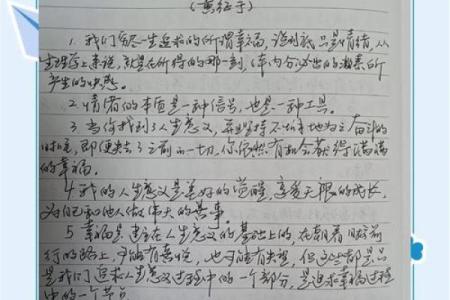 1. 我们穷尽一生追求的所谓幸福，说到底只是情绪，从
生理学上来说，就是在所得的那一刻，体内分泌出的激素所
产生的快感。
2. 情绪的本质是一种信号，也是一种工具。
3. 当你找到了人生意义，并坚持不懈地为之奋斗的
时候，即便失去了之前的一切，你依然有机会获得满满
的幸福。
4. 我的人生意义是美好的觉醒，享受无限的成长，
为自己和他人做伟大的善事。
5. 幸福是建立在人生意义的基础上的，在朝着目标前
行的路上，可能有喜悦，也可能有失望，但这些都是只
是我们追求人生意义过程中的一个部分，是追求幸福过程
中的一个节点